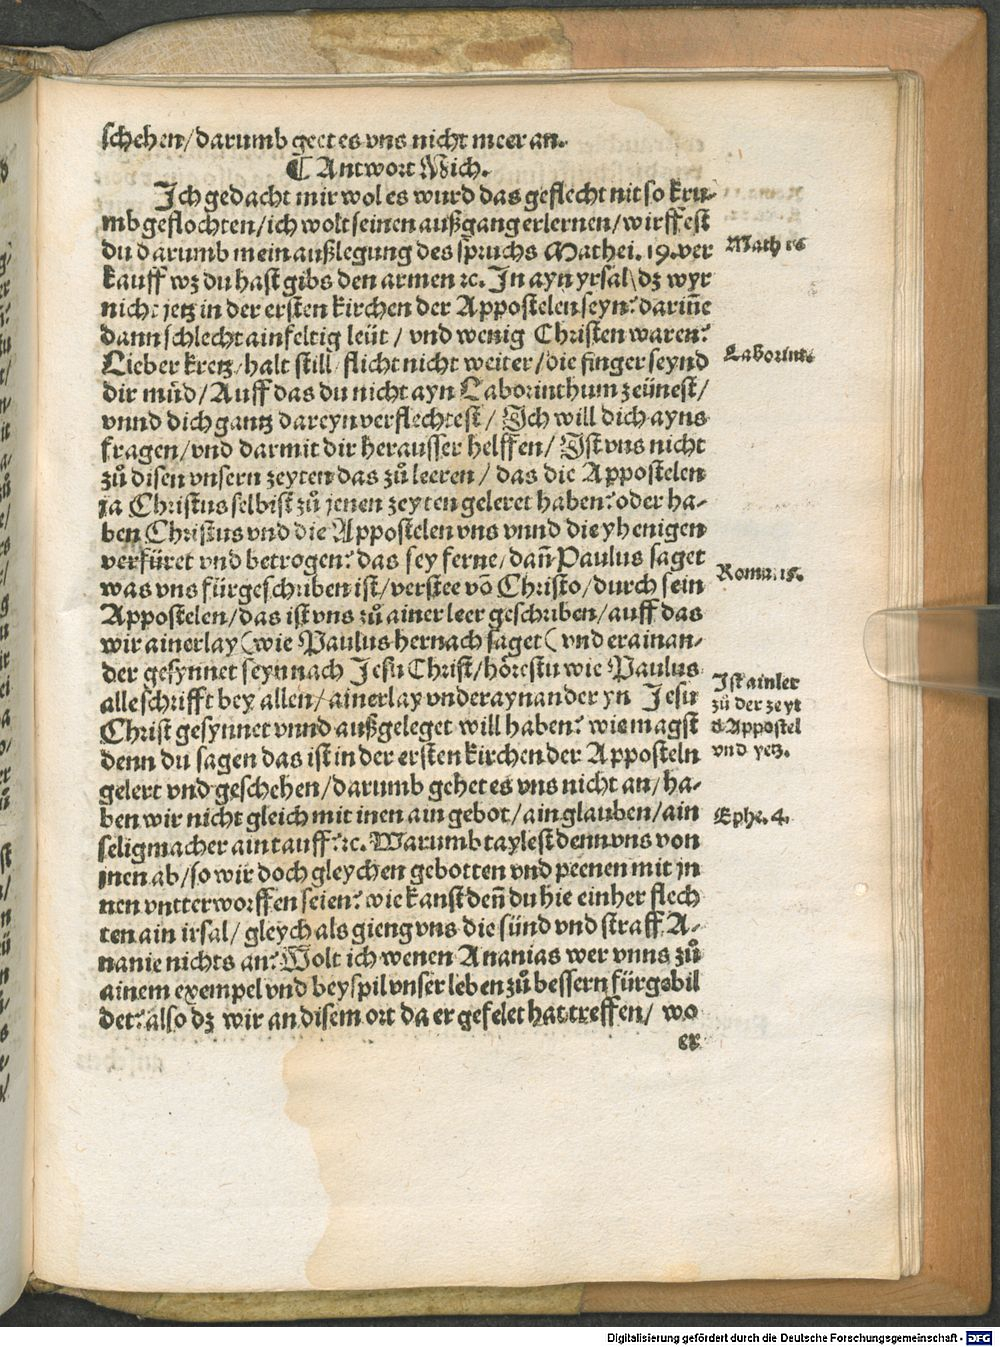 schehen/darumb geet es vns nicht meer an.
¶ Antwort Mich.
Ich gedacht mir wol es wurd das geflecht nit so kru-
mb geflochten/ich wolt seinen außgang erlernen/wirffest
du darumb mein außlegung des spruchs Mathei. 19. ver
kauff wz du hast gibs den armen ꝛc. In ayn yrsal\dz wyr
nicht jetz in der ersten kirchen der Appostelen seyn? dariñe
dann schlecht ainfeltig leüt / vnd wenig Christen waren?
Lieber kretz/halt still/flicht nicht weiter/die finger seynd
dir müd/Auff das du nicht ayn Laborinthum zeünest/
vnnd dich gantz dareyn verflechtest/ Ich will dich ayns
fragen/vnd darmit dir herausser helffen/ Ist vns nicht
zů disen vnsern zeyten das zů leeren/ das die Appostelen
ja Christus selbist zů jenen zeyten geleret haben? oder ha-
ben Christus vnd die Appostelen vns vnnd die yhenigen
verfüret vnd betrogen? das sey ferne/dañ Paulus saget
was vns fürgeschriben ist/verstee võ Christo/durch sein
Appostelen/das ist vns zů ainer leer geschriben/auff das
wir ainerlay (wie Paulus hernach saget( vnd erainan-
der gesynnet seyn nach Jesu Christ/hörestu wie Paulus
alle schrifft bey allen/ainerlay vnderaynander yn Jesu
Christ gesynnet vnnd außgeleget will haben? wie magst
denn du sagen das ist in der ersten kirchen der Apposteln
gelert vnd geschehen/darumb gehet es vns nicht an/ha-
ben wir nicht gleich mit inen ain gebot/ain glauben/ain
seligmacher ain tauff?ꝛc. Warumb taylest denn vns von
jnen ab/so wir doch gleychen gebotten vnd peenen mit jn
nen vntterworffen seien? wie kanst deñ du hie einher flech
ten ain irsal/gleych als gieng vns die sünd vnd straff A-
nanie nichts an? Wolt ich wenen Ananias wer vnns zů
ainem exempel vnd beyspil vnser leben zů bessern fürgebil
det? also dz wir an disem ort da er gefelet hat treffen/ wo
er
Math 16
Laborint.
Roma. 15.
Ist ainler
zů der zeyt
d Appostel
vnd yetz.
Ephe. 4.
Digitalisierung gefördert durch die Deutsche Forschungsgemeinschaft - DFG